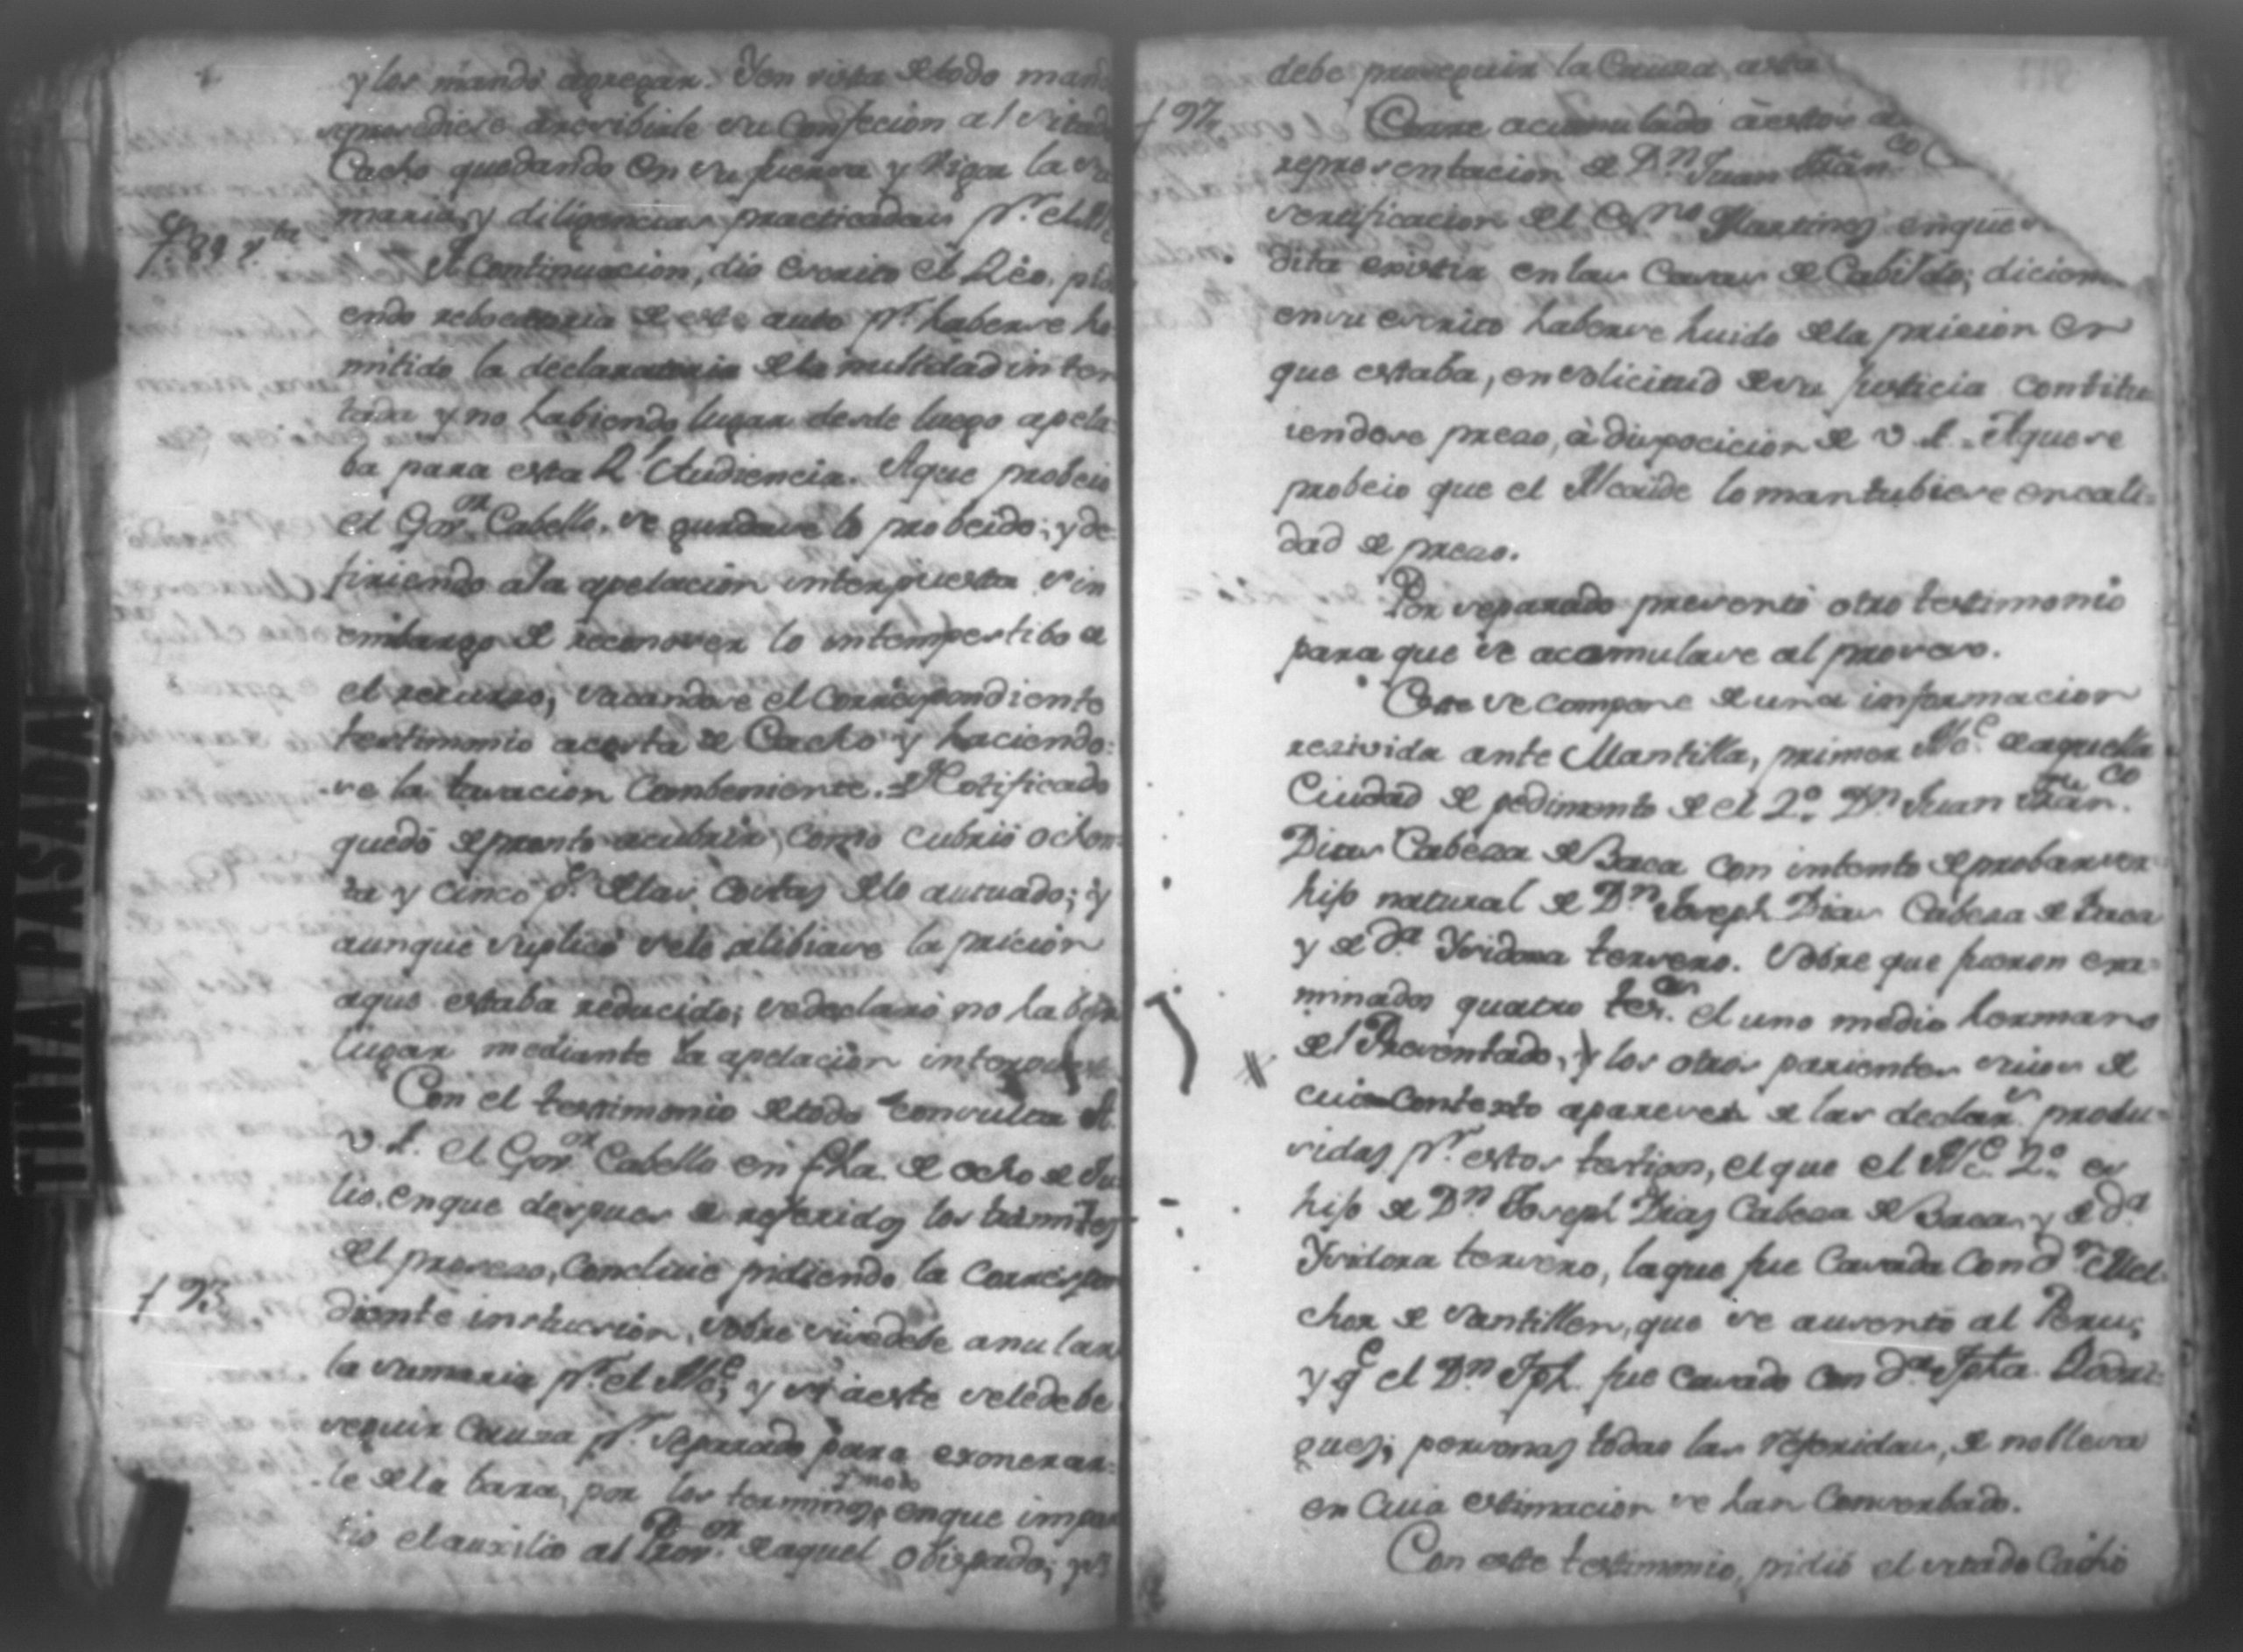 y los mandó agregar. Y en vista de todo man
se procediese a recibirle su Confecion al citad
Cacho quedando en su fuerza y Vigor la su
maria, y diligencias practicadas pr. el Al
f. 89 vta
A Continuacion, dio escrito el Reo. pidi
endo rebocatoria de este auto pr. haberse ho
mitido la declaratoria de la nulidad inten
tada y no habiendo lugar desde luego apela
ba para esta Rl. Audiencia. A que probeio
el Gor.or Cabello, se guardase lo probeido; y de
firiendo a la apelacion interpuesta sin
embargo de reconoser lo intempestibo de
el recurso, sacandose el Correspondiente
testimonio a costa de Cacho y haciendo=
se la tasacion Combeniente. Notificado
quedó de pronto a cubrir, como cubrió ochen
ta y cinco ps. de las costas de lo actuado; y
aunque suplicó se le alibiase la pricion
a que estaba reducido; se declaró no haber
lugar mediante la apelacion interpuesta
Con el testimonio de todo Consulta A.
V. A. el Gor.or Cabello en fha. de ocho de Ju
lio. en que despues de referidos los tramites
f 93
de el proceso, Concluie pidiendo la Correspon
diente instrucsion, sobre si se debe anular
la sumaria pr. el Alce, y si a este se le debe
seguir Causa pr. separado para exonerar=
le de la bara, por los terminos, y modo en que impar
tio el auxilio al Prov.or de aquel Obispado; y si
debe proseguir la Causa, asta
f 97
Corre acumulado à estos a
representacion de Dn. Juan Franco C
sertificacion de el Esno. Martinez en que
dita existir en las Casas de Cabildo; dicien
en su escrito haberse huido de la pricion en
que estaba, en solicitud de su justicia constitu
iendose preso, à disposicicion de V. A. A que se
probeio que el Alcaide lo mantubiese en cali=
dad de preso.
Por separado presentó otro testimonio
para que se acomulase al proseso.
Este se compone de una informacion
resivida ante Mantilla, primer Alce. de aquella
Ciudad de pedimento de el 2o. Dn. Juan Franco.
Dias Cabeza de Baca con intento de probar ser
hijo natural de Dn. Joseph Dias Cabeza de Baca
y de da. Ysidora terrero. Sobre que fueron exa=
minados quatro tes. el uno medio hermano
de el Presentado, y los otros parientes suios de
cuio Contexto aparese de las declars. produ=
sidas pr. estos testigos, el que el Alce. 2o. es
hijo de Dn. Joseph Dias Cabeza de Baca, y de da.
Ysidora terrero, la que fue Casada Con dn. Mel=
chor de Santillen, que se ausentó al Peru;
y qe. el Dn. Jph. fue casado con da. Jpha. Rodri=
gues; personas todas las referidas, de nobleza
en Cuia estimacion se han Conserbado.
Con este testimonio, pidió el citado Cacho
TINTA PASADA